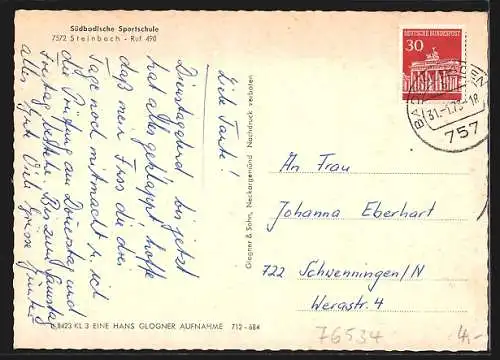 Südbadische Sportschule
7572 Steinbach - Ruf 498
Dienstagabend
Liebe Tante!
bis jetzt
hat alles geklappt, hoffe
daß mein Fuss die drei
Tage noch mitmacht u. ich
die Prüfung am Donnerstag und
Freitag bestehe. Bis zum Samstag
alles Gute Viele Grüsse
Günter
Glogner & Sohn, Neckargemünd Nachdruck verboten
8423 KL 3 EINE HANS GLOGNER AUFNAHME 712 - 684
DEUTSCHE BUNDESPOST
30
BADEN-BADEN
31.-1.73-18
757
An Frau
Johanna Eberhart
722 Schwenningen/N
Werastr. 4
76534
4,-